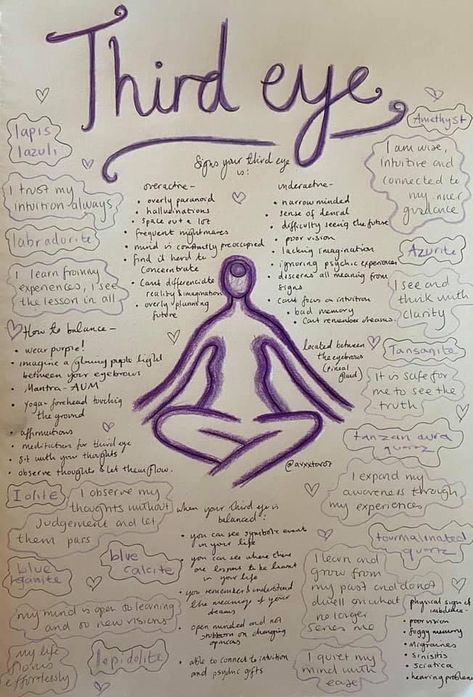 Third eye
Signs your third eye
is:
overactive-
• overly paranoid
• halludinations
• space out a lot
• frequent nightmares
• mind is constantly preoccupied
find it hard to
concentrate
• Cant differenciate
reality & imagination
• overly planning
future
underactive-
• narrow minded
• sense of denial
• difficulty seeing the future
• poor vision
• lacking imagination
• ignoring psychic experiences
• all meaning from
signs
• Cant focus on intuition
• bad memory
• Cant remember dreams.
lapis
lazuli
I trust my
intuition always
labradorite
I learn from my
experiences, I see
the lesson in all
How to balance-
• wear purple!
• imagine a glowing purple light
between your eyebrows
• Mantra - AUM
• yoga- forehead touching
the ground
• affirmations
• meditation for third eye
• Sit with your thoughts
• observe thoughts & let them flow.
Amethyst
I am wise,
intuitive and
connected to
my inner
guidance
Azurite
I see and
think with
clarity
located between
the eyebrows
(pineal
gland)
Tansanite
It is safe for
me to see the
truth
tanzan aura
quarz
I expand my
awareness through
my experiences
@avxxtarot
Iolite
I observe my
thoughts without
judgement and let
them pass
blue
calcite
blue
kyanite
my mind is open to learning
and to new visions
my life
flows
effortlessly
lepidolite
when your third eye is
balanced:
• you can see symbolic event
in your life
• you can see where there
are lessons to be learnt
in your life
• you remember & understand
the meaning of your
• open minded and not
stubborn on changing
opinions
• able to connect to intuition
and psychic gifts
tourmalinated
quartz
I learn and
grow from
my past and donot
dwell on what
no longer
serves me
I quiet my
mind with
ease
physical signs of
imbalance-
• poor vision
• foggy memory
• Migraines
• Sinisitis
• Sciatica
• hearing problems